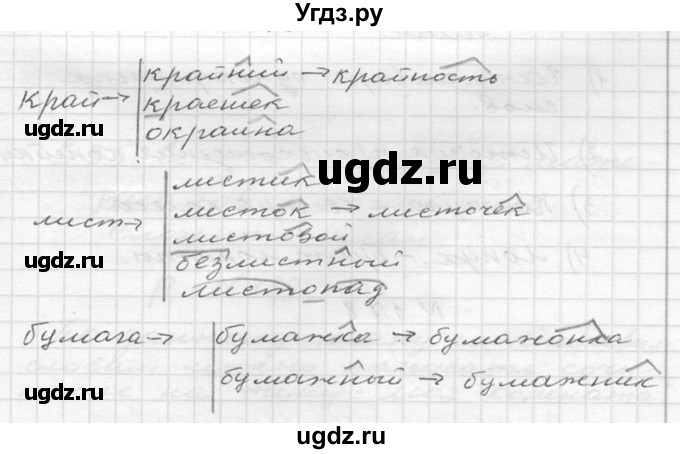 Угдз.ру
крайний → крайность
край → краешек
угдз.ru окраина
угдз.ru
листик
лист → листок → листочек
листовой
угдз.ru безлистный
листопад
бумага → бумажка → бумажонка
угдз.ru бумажный → бумажник
угдз.ru